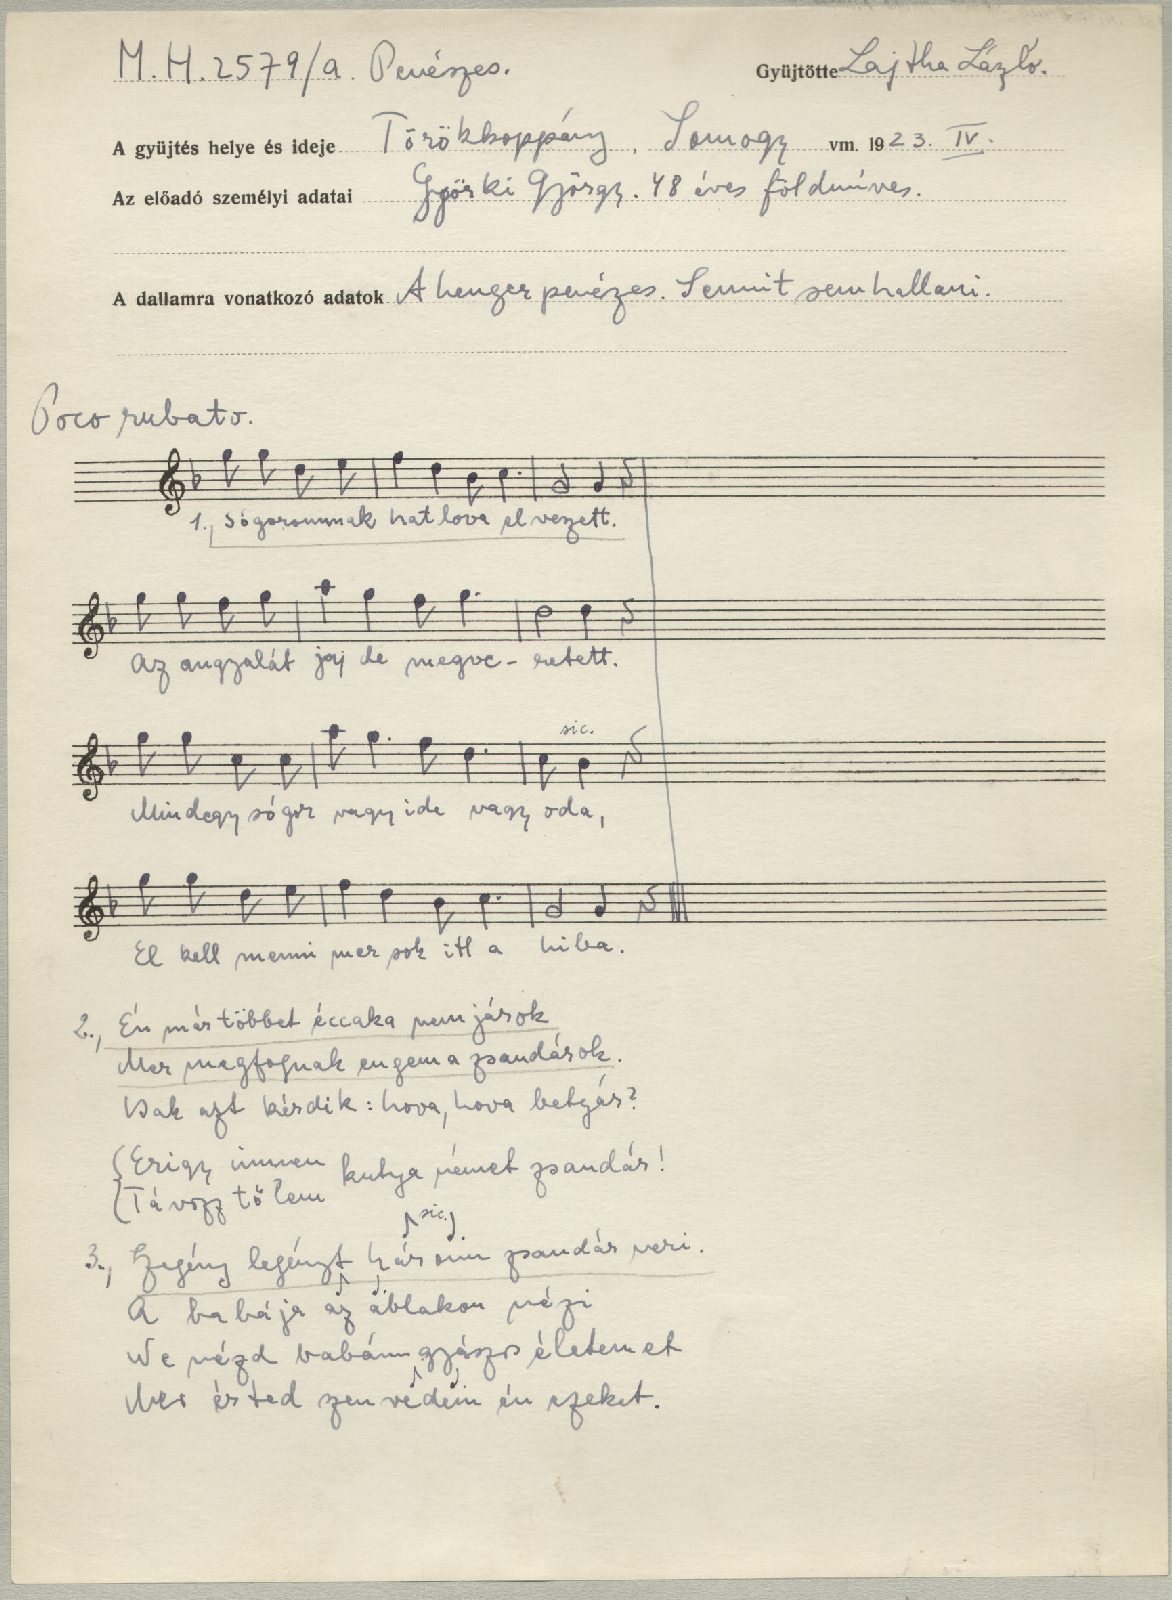 M.H. 2579/a. Penészes. Gyüjtötte Lajtha László.
A gyüjtés helye és ideje Törökkoppány, Somogy vm. 1923. IV.
Az előadó személyi adatai Györki György. 48 éves földmüves.
A dallamra vonatkozó adatok A henger penézes. Semmit sem hallani.
Poco rubato.
1., Sógoromnak hat lova elveszett.
Az angyalát jaj de megve-retett.
sic.
Mindegy sógor vagy ide vagy oda,
El kell menni mer sok itt a hiba.
2., Én már többet éccaka nem járok
Mer megfognak engem a zsandárok.
Csak azt kérdik: hova, hova betyár?
Erigy innen kutya német zsandár!
Távozz tőlem
sic.
3., Szegény legényt három zsandár veri.
A babája az ablakon nézi
Ne nézd babám gyászos életemet
Mer érted szenvedem én ezeket.